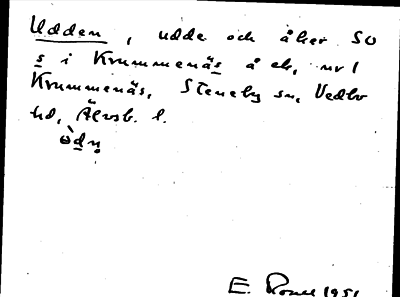 Udden, udde och åker SO
s i Krummenäs å ek, nr 1
Krummenäs, Steneby sn, Vedbo
hd, Älvsb. l.
E. 1951